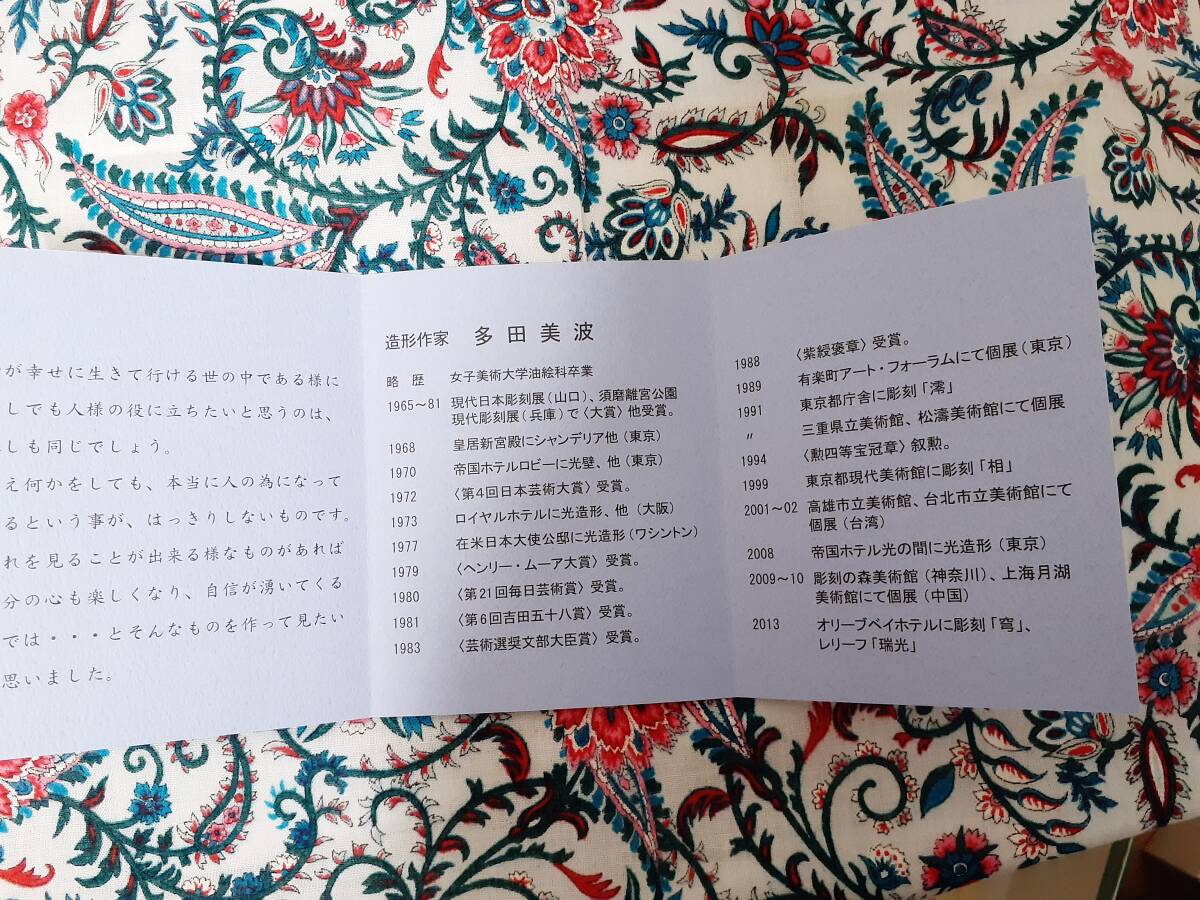 が幸せに生きて行ける世の中である様に
しでも人様の役に立ちたいと思うのは、
しも同じでしょう。
え何かをしても、本当に人の為になって
るという事が、はっきりしないものです。
れを見ることが出来る様なものがあれば
分の心も楽しくなり、自信が湧いてくる
では・・・とそんなものを作って見たい
思いました。
造形作家 多田美波
略歴 女子美術大学油絵科卒業
1965〜81 現代日本彫刻展（山口）、須磨離宮公園
現代彫刻展（兵庫）で〈大賞〉他受賞。
1968 皇居新宮殿にシャンデリア他（東京）
1970 帝国ホテルロビーに光壁、他（東京）
1972 〈第4回日本芸術大賞〉受賞。
1973 ロイヤルホテルに光造形、他（大阪）
1977 在米日本大使公邸に光造形（ワシントン）
1979 〈ヘンリー・ムーア大賞〉受賞。
1980 〈第21回毎日芸術賞〉受賞。
1981 〈第6回吉田五十八賞〉受賞。
1983 〈芸術選奨文部大臣賞〉受賞。
1988 〈紫綬褒章〉受賞。
1989 有楽町アート・フォーラムにて個展（東京）
1991 東京都庁舎に彫刻「澪」
〃 三重県立美術館、松濤美術館にて個展
1994 〈勲四等宝冠章〉叙勲。
1999 東京都現代美術館に彫刻「相」
2001〜02 高雄市立美術館、台北市立美術館にて
個展（台湾）
2008 帝国ホテル光の間に光造形（東京）
2009〜10 彫刻の森美術館（神奈川）、上海月湖
美術館にて個展（中国）
2013 オリーブベイホテルに彫刻「穹」、
レリーフ「瑞光」